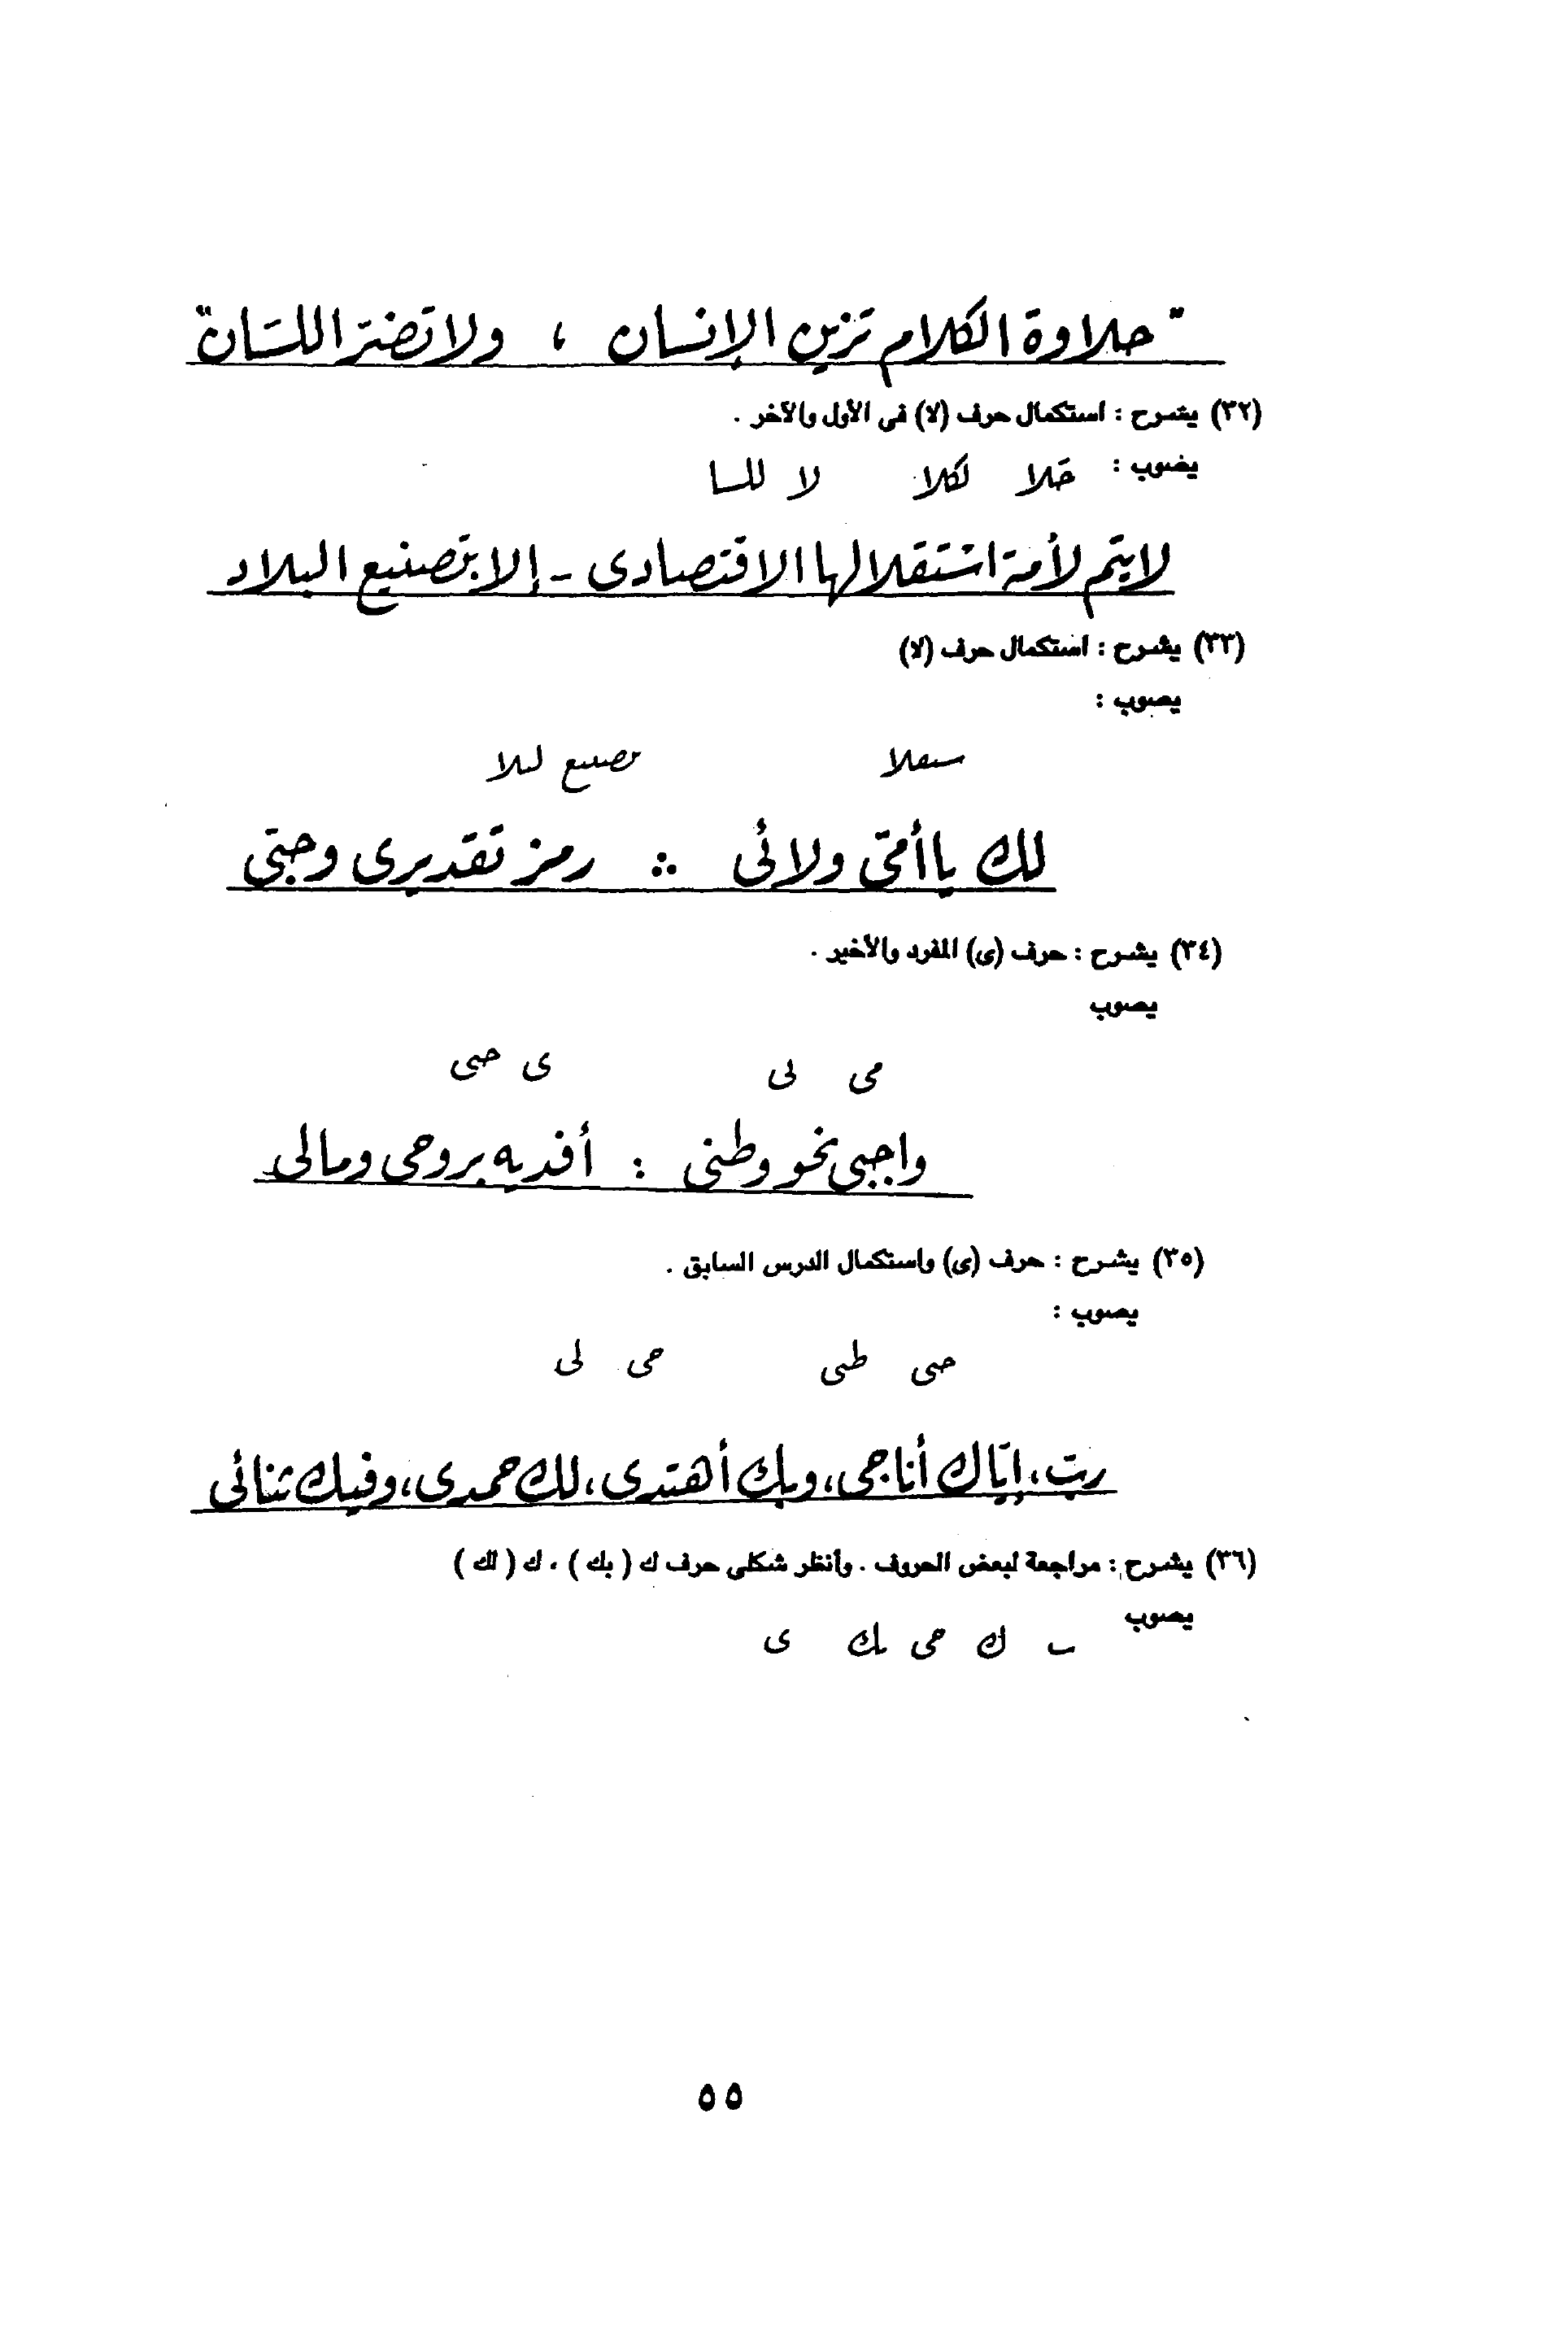 "حلاوة الكلام تزين الإنسان ، ولا تضتر اللسَان"
(٣٢) يشرح : استكمال حرف (لا) فى الأول والآخر .
يضوب : حلا لكلا لا للسا
لا يتم لأمة استقلالها الاقتصادى - إلا بتصنيع البلاد
(٣٣) يشرح : استكمال حرف (لا)
يصوب :
سعلا تصنيع لبلا
لك يا أمتى ولائى ∴ رمز تقديرى وحبّى
(٣٤) يشرح : حرف (ى) المفرد والأخير .
يصوب
مى لى ى حبى
واجبى نحو وطنى : أفديه بروحى ومالى
(٣٥) يشرح : حرف (ى) واستكمال الدرس السابق .
يصوب :
حى طى حى لى
ربّ، إيّاك أناجى، وبك أهتدى، لك حمدى، وفيك ثنائى
(٣٦) يشرح : مراجعة لبعض الحروف . وأنظر شكلى حرف ك ( بك ) ، ك ( لك )
يصوب
ب ك حى بك ى
٥٥